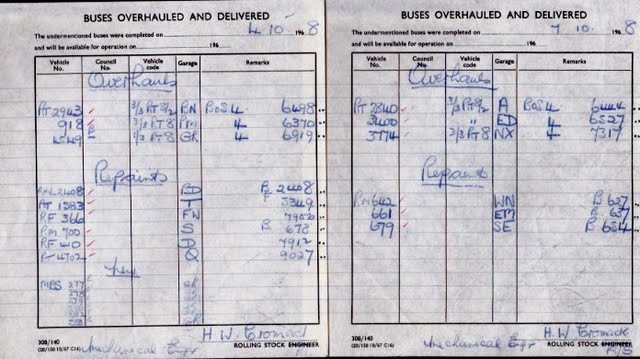 BUSES OVERHAULED AND DELIVERED
The undermentioned buses were completed on 4.10. 196 8
and will be available for operation on 196
Vehicle No. Council No. Vehicle code Garage Remarks
Overhauls
RT 2943 3/3 RT 8/2 RN BOS 4 6498
918 3/3 RT 8 PM 4 6370
4549 1/2 RT 8 GR 4 6919
Repaints
RML 2408 2408
RT 1583 T 3349
RF 366 FW 7906
RM 700 S B 678
RF 410 D 7912
R 4702 Q 9027
New
MBS 277 GR
278
279
288 GR
H.W. Cromack
308/140
(20/150 10/67 C16)
Mechanical Engr
ROLLING STOCK ENGINEER
BUSES OVERHAULED AND DELIVERED
The undermentioned buses were completed on 7.10. 196 8
and will be available for operation on 196
Vehicle No. Council No. Vehicle code Garage Remarks
Overhauls
RT 2840 3/3 RT 8/2 A BOS 4 6444
3400 " ED 4 6527
3774 2/3 RT 8 NX 4 7317
Repaints
RM 642 WN B 627
661 B 637
679 SE B 654
H.W. Cromack
308/140
(20/150 10/67 C16)
Mechanical Engr
ROLLING STOCK ENGINEER